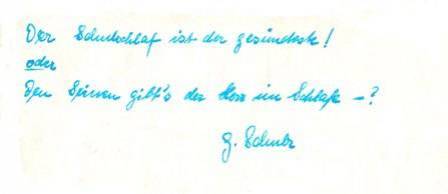 Der Schulschlaf ist der gesündeste!
oder
Den Seinen gibt's der Herr im Schlafe –?
G.